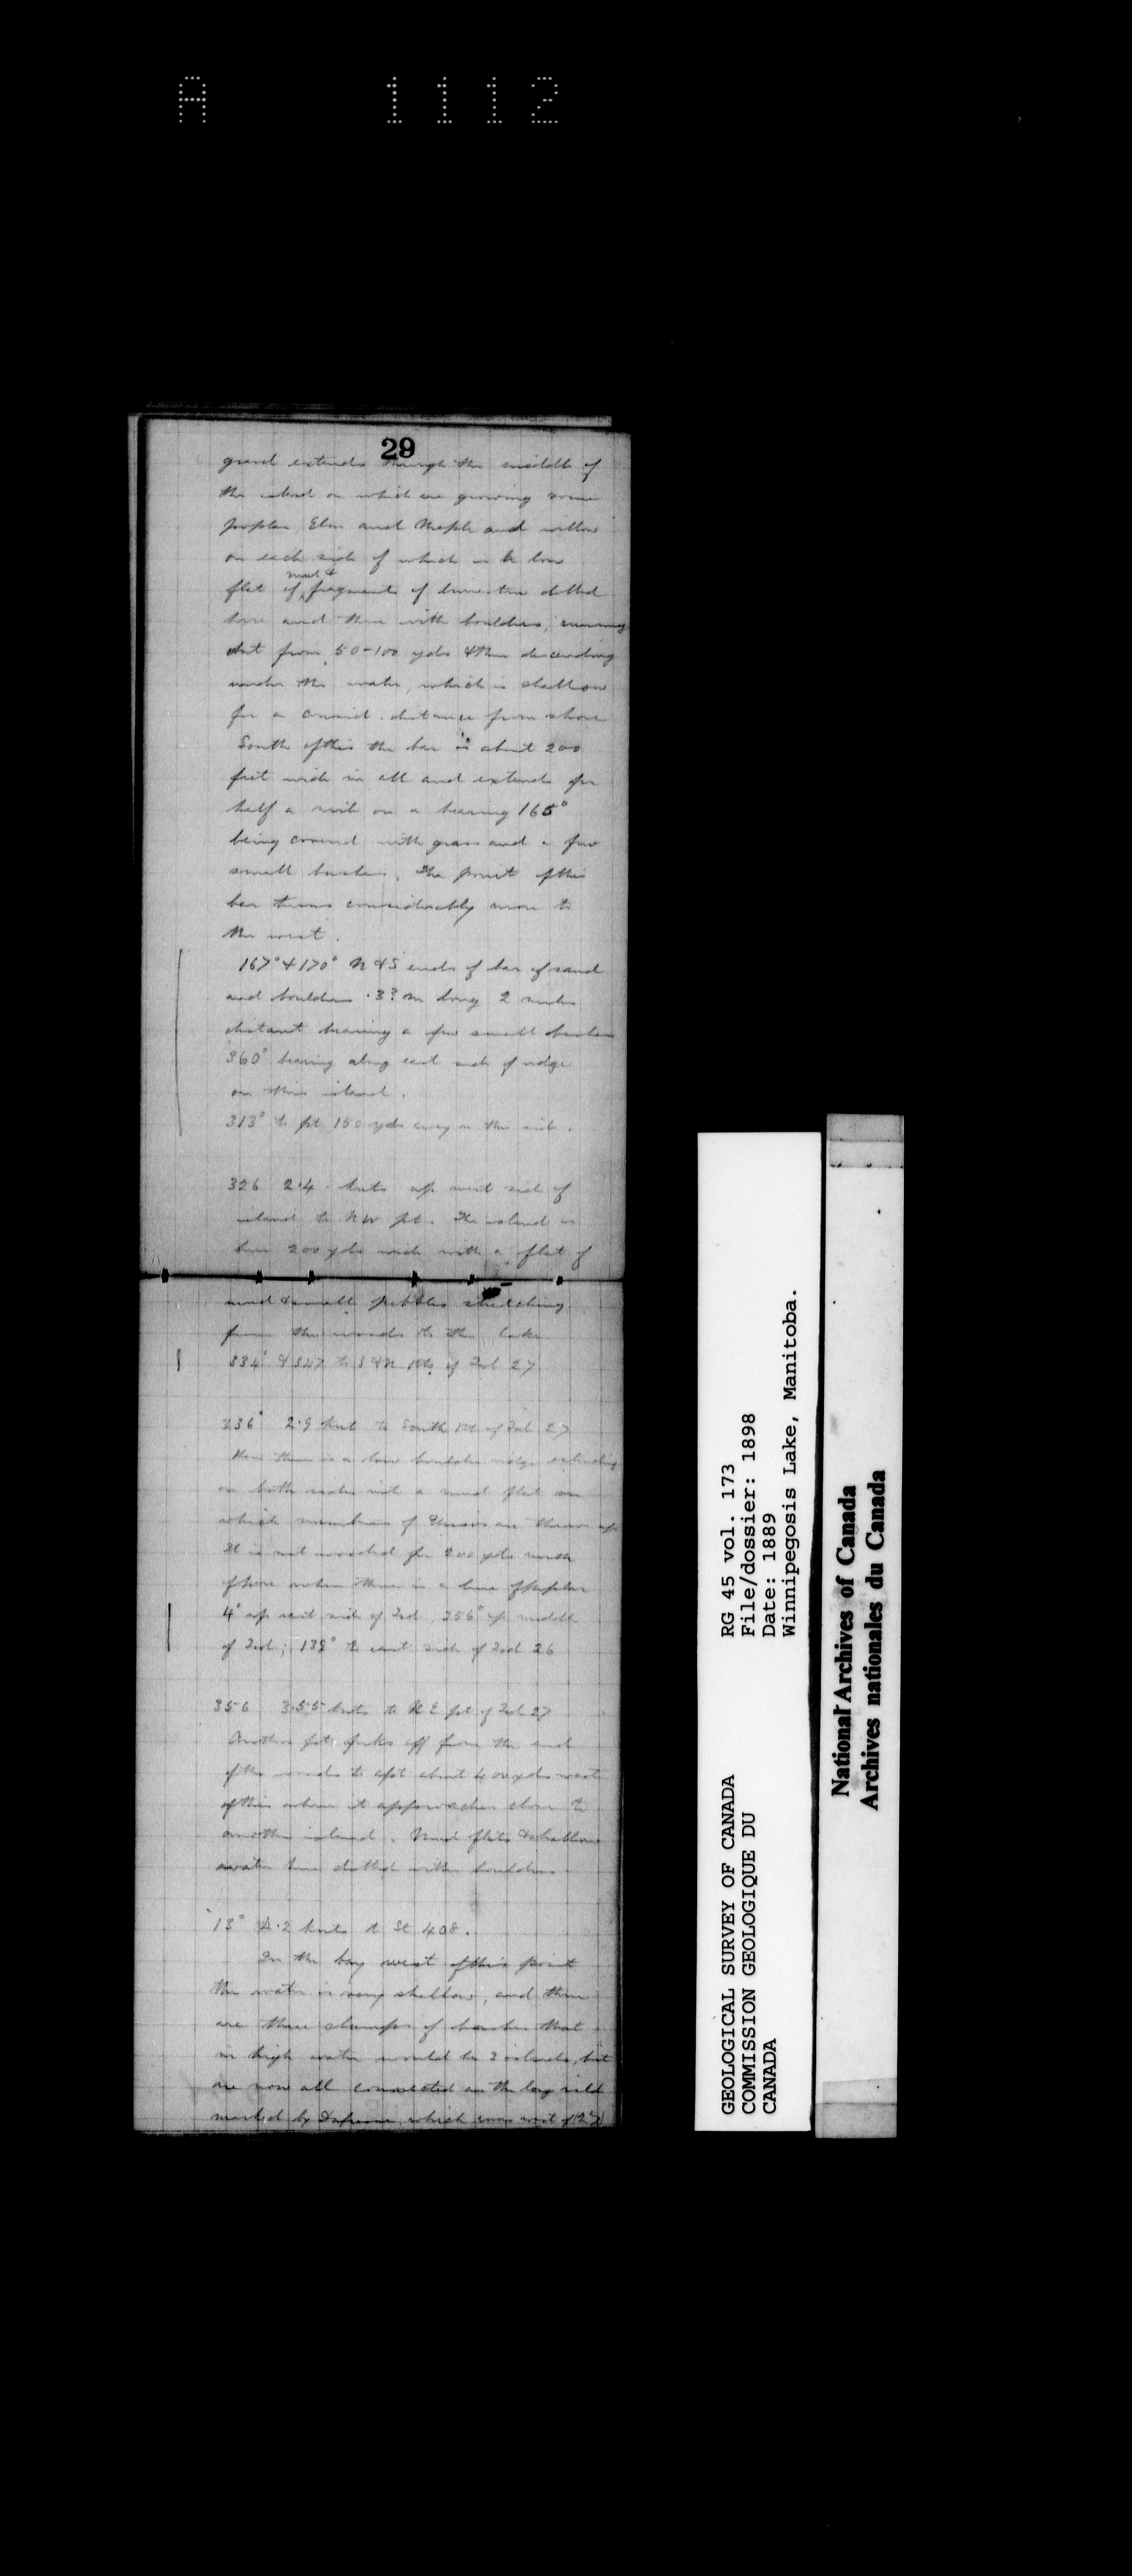 A 1112
29
gravel extends through the middle of
the island on which are growing some
poplar, Elm and Maple and willow
on each side of which is a low
flat of mud & fragments of limestone dotted
here and there with boulders, running
out from 50-100 yds & then descending
under the water, which is shallow
for a consid. distance from shore
South of this the bar is about 200
feet wide in all and extends for
half a mile on a bearing 165°
being covered with grass and a few
small bushes. The point of this
bar turns considerably more to
the west.
167° & 170° N & S ends of bar of sand
and boulders .3? m long 2 miles
distant bearing a few small bushes
360° bearing along east side of ridge
on this island.
313° to pt. 150 yds away on this side.
326 2.4 knts up west side of
island to NW pt. The island is
here 200 yds wide with a flat of
mud & small pebbles stretching
from the woods to the lake
334° & 347 to S & N Pts of Isl 27
336° 2.9 knt to South Pt of Isl 27
Here there is a low boulder ridge extending
on both sides into a mud flat on
which numbers of Unios are thrown up
It is not wooded for 200 yds north
of here when there is a line of poplar
4° up east side of Isd, 356° up middle
of Isd; 139° to east side of Isd 26
356 3.55 knts to N E pt of Isl 27
Another pt. forks off from the end
of the woods to a pt about 400 yds west
of this where it approaches close to
another island. Mud flats & shallow
water here dotted with boulders
13° 4.2 knts to St 408.
In the bay west of this point
the water is very shallow, and there
are three clumps of bushes that
in high water would be 3 islands, but
are now all connected as the bay
marked by which was west of (27)
GEOLOGICAL SURVEY OF CANADA
COMMISSION GEOLOGIQUE DU
CANADA
RG 45 vol. 173
File/dossier: 1898
Date: 1889
Winnipegosis Lake, Manitoba.
National Archives of Canada
Archives nationales du Canada